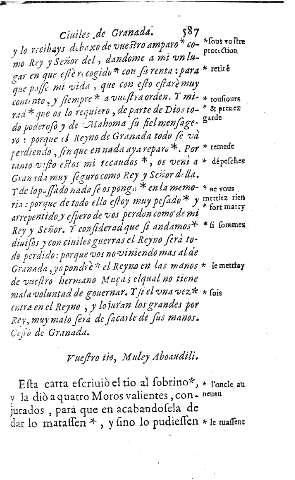 Civiles de Granada. 587
y lo recibays debaxo de vuestro amparo* co- * sous vostre
mo Rey y Señor del, dandome a mi vn lu- protection.
gar en que esté recogido* con su renta: para * retiré
que passe mi vida, que con esto estarè muy
contento, y siempre* a vuestra orden. Y mi- * tousiours
rad* que os lo requiero, de parte de Dios to- & prenez
do poderoso y de Mahoma su fiel mensage- garde
ro: porque el Reyno de Granada todo se và
perdiendo, sin que en nada aya reparo*. Por * remede
tanto visto estos mi recaudos*, os veni a * depesches
Granada muy seguro como Rey y Señor della.
Y de lo passado nada se os ponga* en la memo- * ne vous
ria: porque de todo ello estoy muy pesado* y mettiez rien
arrepentido y espero de vos perdon como de mi * fort marry
Rey y Señor. Y considerad que si andamos* * si sommes
diuisos y con ciuiles guerras el Reyno serà to-
do perdido: porque vos no viniendo mas al de
Granada, yo pondrè* el Reyno en las manos * le mettray
de vuestro hermano Muça; el qual no tiene
mala voluntad de gouernar. Y si el vna vez* * fois
entra en el Reyno, y lo juran los grandes por
Rey, muy malo serà de sacarle de sus manos.
Cesso de Granada.
Vuestro tio, Muley Aboaudili.
Esta carta escriuiò el tio al sobrino*, * l'oncle au
y la diò a quatro Moros valientes, con- neueu
jurados, para que en acabandosela de
dar lo matassen*, y sino lo pudiessen * le tuassent